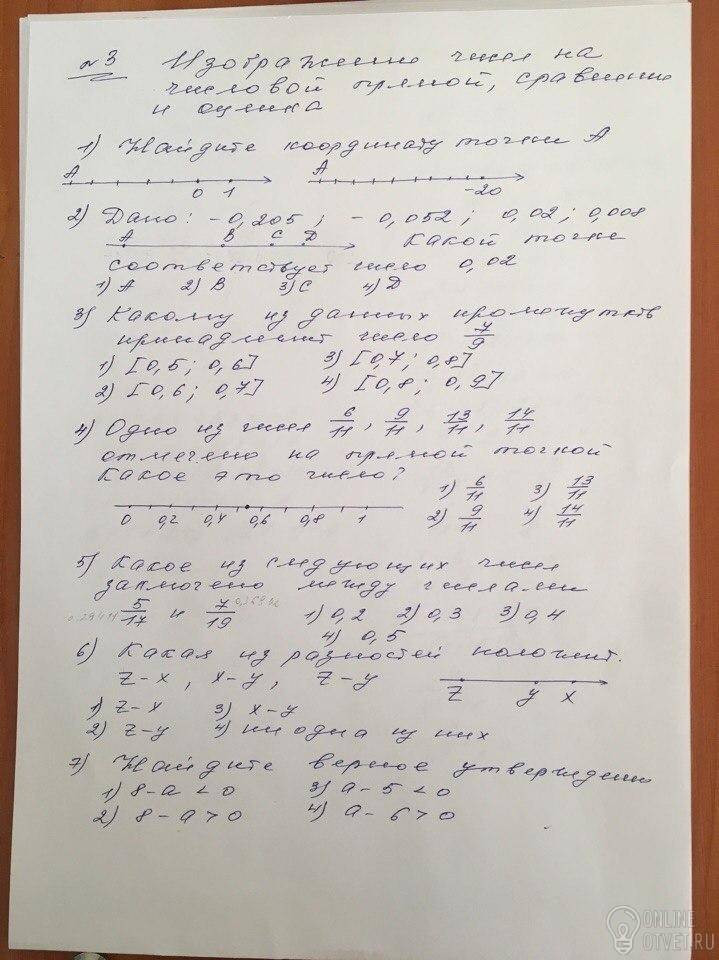 №3 Изображение чисел на
числовой прямой, сравнение
и оценка
1) Найдите координату точки А
А 0 1 А -20
2) Дано: -0,205; -0,052; 0,02; 0,008
А В С D Какой точке
соответствует число 0,02
1) А 2) В 3) С 4) D
3) Какому из данных промежутков
принадлежит число 7/9
1) [0,5; 0,6] 3) [0,7; 0,8]
2) [0,6; 0,7] 4) [0,8; 0,9]
4) Одно из чисел 6/11, 9/11, 13/11, 14/11
отмечено на прямой точкой
Какое это число?
1) 6/11 3) 13/11
0 0,2 0,4 0,6 0,8 1 2) 9/11 4) 14/11
5) Какое из следующих чисел
заключено между числами
5/17 и 7/19 1) 0,2 2) 0,3 3) 0,4
4) 0,5
6) Какая из разностей положит.
z-x, x-y, z-y z y x
1) z-x 3) x-y
2) z-y 4) ни одна из них
7) Найдите верное утверждение
1) 8-а<0 3) а-5<0
2) 8-а>0 4) а-6>0
ONLINE
OTVET.RU